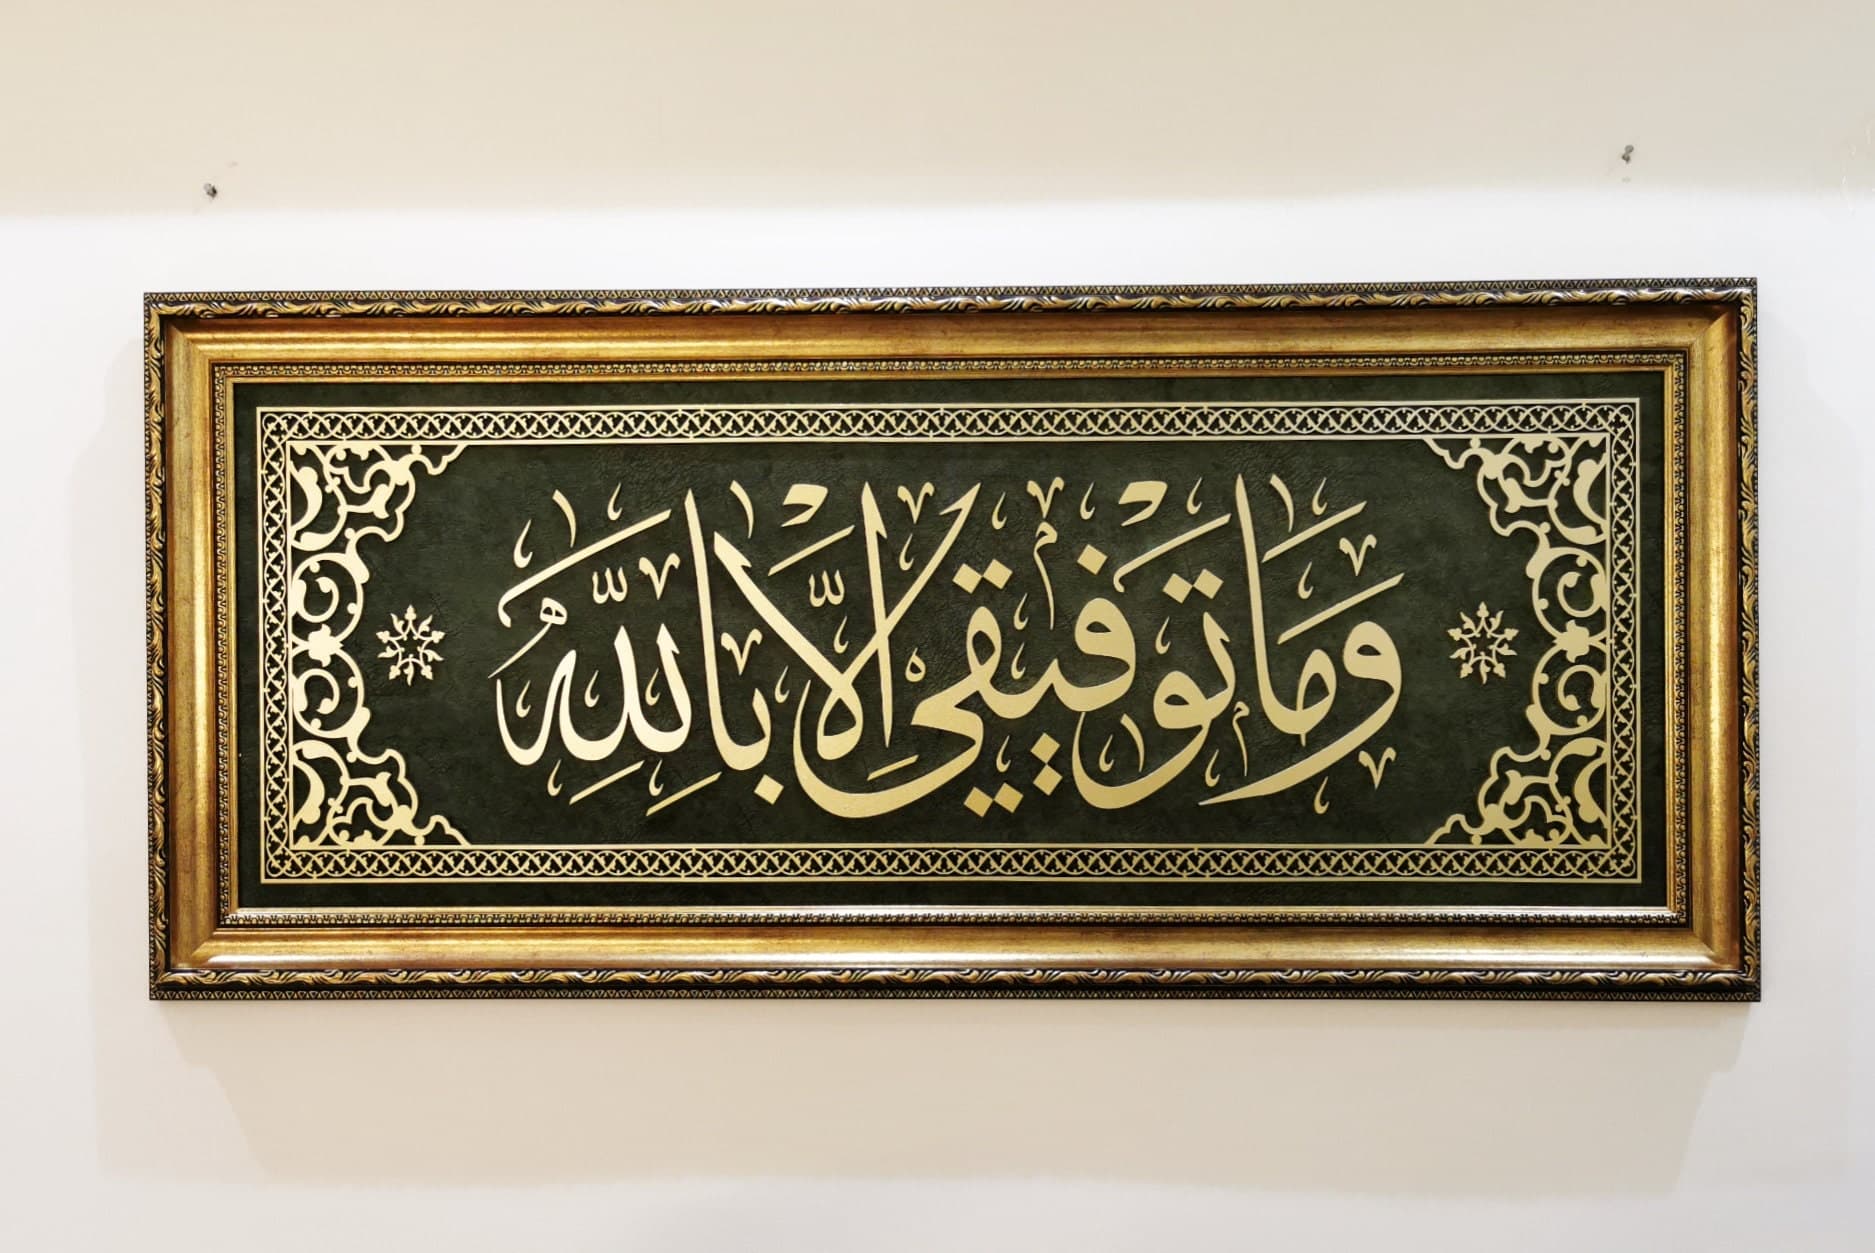 وَمَا تَوْفِيقِي إِلَّا بِاللَّهِ